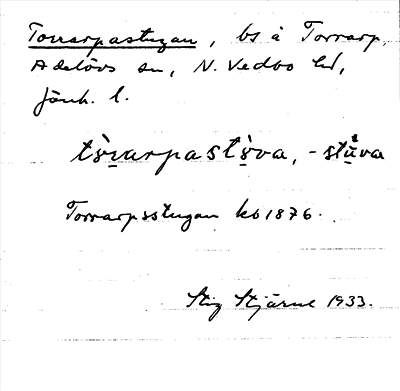 Torrarpastugan, bs å Torrarp,
Adelövs sn, N. Vedbo hd,
Jönk. l.
tòrarpastòva, -stùva
Torrarpsstugan kb 1876.
Stig Stjärne 1933.